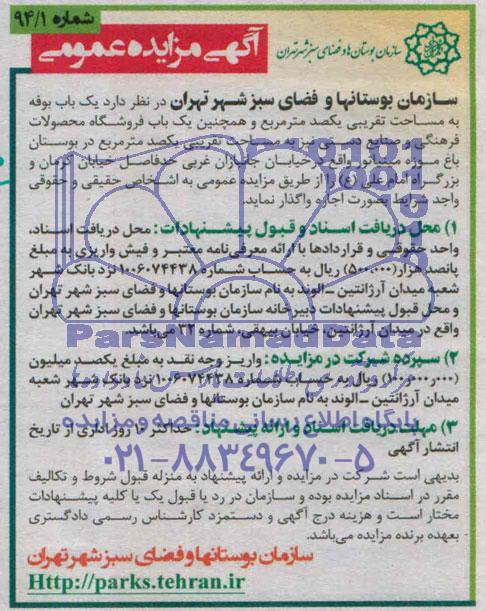 شماره ۹۴/۱
سازمان بوستان ها و فضای سبز شهر تهران
آگهی مزایده عمومی
سازمان بوستانها و فضای سبز شهر تهران در نظر دارد یک باب بوفه
به مساحت تقریبی یکصد مترمربع و همچنین یک باب فروشگاه محصولات
فرهنگی و صنایع دستی نیز به مساحت تقریبی یکصد مترمربع در بوستان
باغ موزه مینیاتور واقع در خیابان جانبازان غربی حدفاصل خیابان کرمان و
بزرگراه امام علی (ع) را از طریق مزایده عمومی به اشخاص حقیقی و حقوقی
واجد شرایط بصورت اجاره واگذار نماید.
۱) محل دریافت اسناد و قبول پیشنهادات: محل دریافت اسناد،
واحد حقوقی و قراردادها با ارائه معرفی نامه معتبر و فیش واریزی به مبلغ
پانصد هزار (۵۰۰،۰۰۰) ریال به حساب شماره ۱۰۰۶۰۷۴۴۳۸ نزد بانک شهر
شعبه میدان آرژانتین -الوند به نام سازمان بوستانها و فضای سبز شهر تهران
و محل قبول پیشنهادات دبیرخانه سازمان بوستانها و فضای سبز شهر تهران
واقع در میدان آرژانتین، خیابان بیهقی، شماره ۳۲ می‌باشد.
ParsNamadData
۲) سپرده شرکت در مزایده: واریز وجه نقد به مبلغ یکصد میلیون
(۱۰۰،۰۰۰،۰۰۰) ریال به حساب شماره ۱۰۰۶۰۷۴۴۳۸ نزد بانک شهر شعبه
میدان آرژانتین -الوند به نام سازمان بوستانها و فضای سبز شهر تهران
پایگاه اطلاع رسانی مناقصه و مزایده
۳) مهلت دریافت اسناد و ارائه پیشنهاد: حداکثر ۱۰ روز اداری از تاریخ
انتشار آگهی
۰۲۱-۸۸۳۴۹۶۷۰-۵
بدیهی است شرکت در مزایده و ارائه پیشنهاد به منزله قبول شروط و تکالیف
مقرر در اسناد مزایده بوده و سازمان در رد یا قبول یک یا کلیه پیشنهادات
مختار است و هزینه درج آگهی و دستمزد کارشناس رسمی دادگستری
بعهده برنده مزایده می‌باشد.
سازمان بوستانها و فضای سبز شهر تهران
Http://parks.tehran.ir